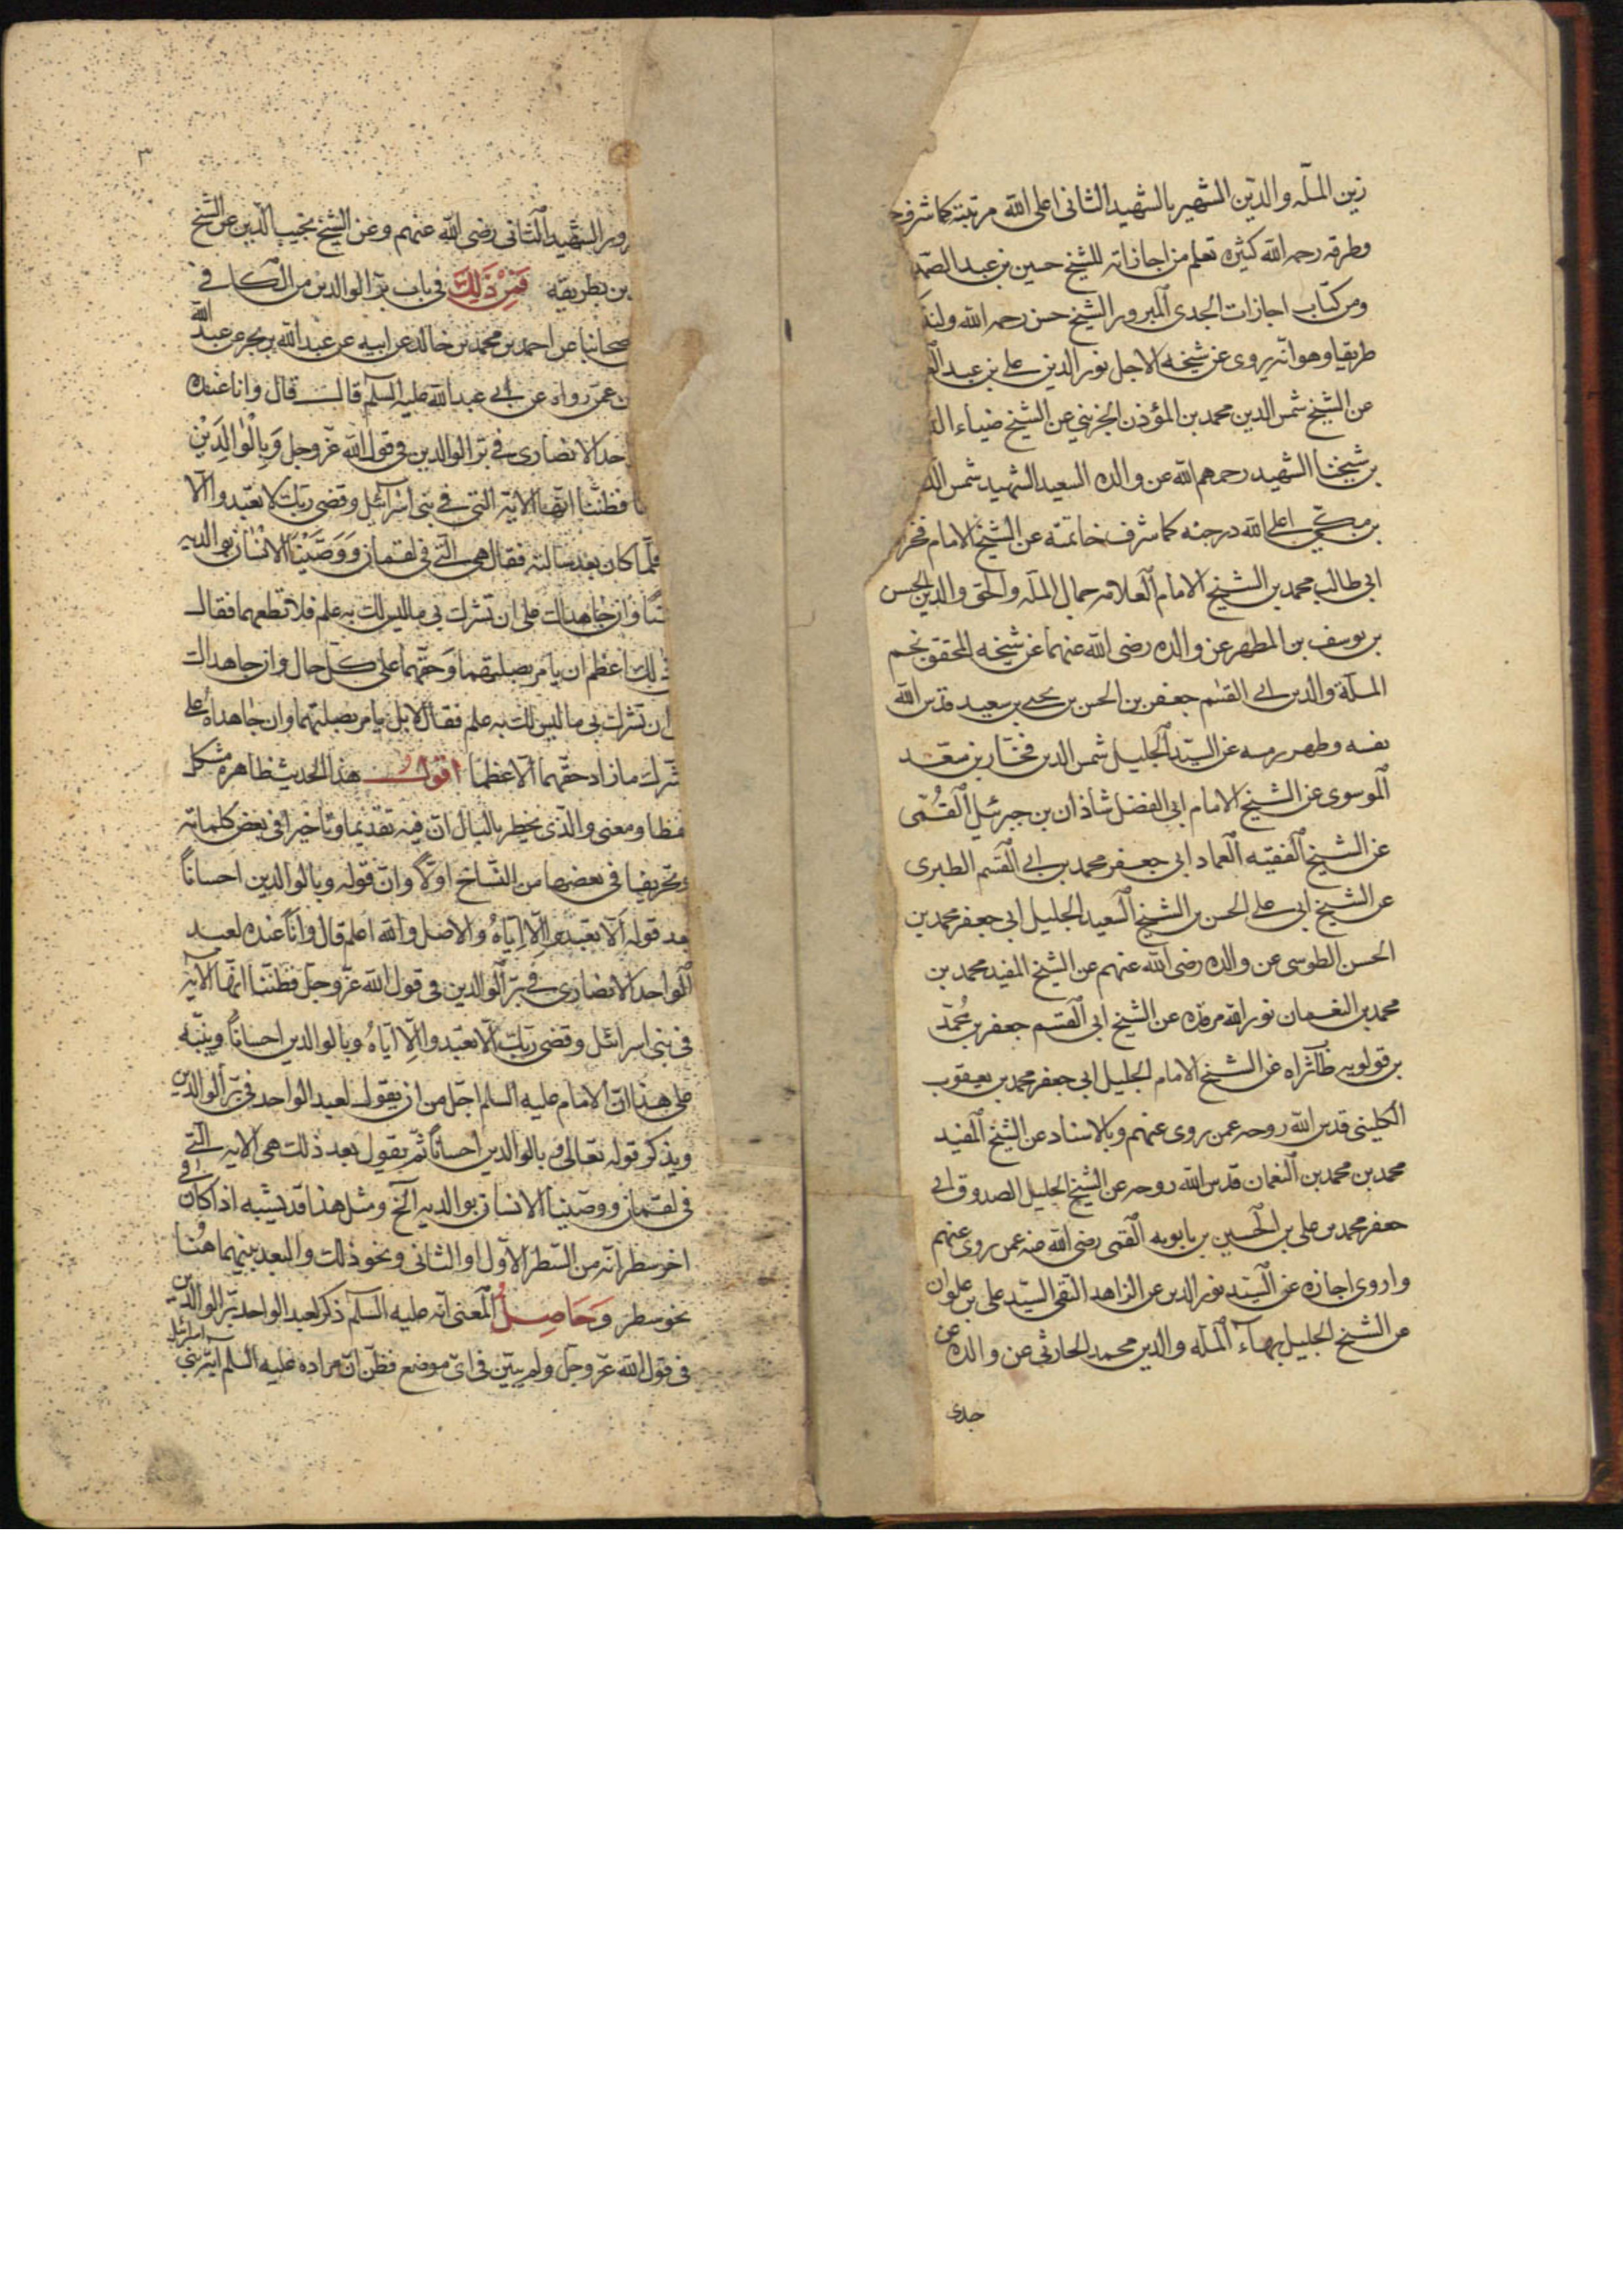 زين الملّه والدّين الشهير بالشهيد الثانى اعلى الله مرتبته كما شرف
وطرقه رحمه الله كثيره تعلم من اجازاته للشيخ حسين بن عبد الصمد
ومن كتاب اجازات لجدى المبرور الشيخ حسن رحمه الله
طريقا وهو انه يروى عن شيخه الاجل نور الدين على بن عبد
عن الشيخ شمس الدين محمد بن المؤذن الجزينى عن الشيخ ضياء
بن شيخنا الشهيد رحمهم الله عن والده السعيد الشهيد شمس
بن مكى اعلى الله درجته كما شرف خاتمته عن الشيخ الامام فخر
ابى طالب محمد بن الشيخ الامام العلامه جمال المله والحق والدين الحسن
بن يوسف بن المطهر عن والده رضى الله عنهما عن شيخه المحقق نجم
الملّة والدين ابى القسم جعفر بن الحسن بن يحيى بن سعيد قدس الله
نفسه وطهر رمسه عن السيّد الجليل شمس الدين فخار بن معد
الموسوى عن الشيخ الامام ابى الفضل شاذان بن جبرئيل القُمّى
عن الشيخ الفقيه العماد ابى جعفر محمد بن ابى القسم الطبرى
عن الشيخ ابى على الحسن بن الشيخ السعيد الجليل ابى جعفر محمد بن
الحسن الطوسى عن والده رضى الله عنهم عن الشيخ المفيد محمد بن
محمد بن النعمان نور الله مرقده عن الشيخ ابى القسم جعفر بن محمّد
بن قولويه طاب ثراه عن الشيخ الامام الجليل ابى جعفر محمد بن يعقوب
الكلينى قدس الله روحه عمن روى عنهم وبالاسناد عن الشيخ المفيد
محمد بن محمد بن النعمان قدس الله روحه عن الشيخ الجليل الصدوق ابى
جعفر محمد بن على بن الحسين بن بابويه القمى رضى الله عنه عمن روى عنهم
واروى اجازه عن السيّد نور الدين عن الزاهد التقى السيّد على بن علوان
عن الشيخ الجليل بهاء المله والدين محمد الحارثى عن والده عن
جدى
٣
الشهيد الثانى رضى الله عنهم وعن الشيخ نجيب الدين عن الشيخ
بطريقه فَمِنْ ذَلِكَ فى باب برّ الوالدين من الكافى
عن احمد بن محمد بن خالد عن ابيه عن عبد الله بن بحر عن عبد الله
عمّن رواه عن ابى عبد الله عليه السلم قال قال وانا عنده
الانصارى فى برّ الوالدين فى قول الله عز وجل وَبِالْوَالِدَيْنِ
فظننّا انّها الاية التى فى بنى اسرائيل وقضى ربك الا تعبدوا الا
فلمّا كان بعد سالته فقال هى التى فى لقمان وَوَصَّيْنَا الانسان بوالديه
وان جاهداك على ان تشرك بى ما ليس لك به علم فلا تطعهما فقال
ذلك اعظم ان يامر بصلتهما وَحقّهما على كل حال وان جاهداك
ان تشرك بى ما ليس لك به علم فقال لا بل يامر بصلتهما وان جاهداه على
الشرك ما زاد حقّهما الا عظما اقول هذا الحديث ظاهره مشكل
لفظا ومعنى والذى يخطر بالبال ان فيه تقديما وتاخيرا فى بعض كلماته
وتحريفا فى بعضها من النسّاخ اوّلاً وانّ قوله وبالوالدين احساناً
بعد قوله الّا تعبدوا الّا ايّاهُ والاصل والله اعلم قال وانا عنده لعبد
الواحد الانصارى فى برّ الوالدين فى قول الله عزّ وجل فظننّا انّها الآية
فى بنى اسرائيل وقضى ربّك الّا تعبدوا الّا ايّاهُ وبالوالدين احساناً وينبّه
على هذا انّ الامام عليه السلم اجلّ من ان يقول لعبد الواحد فى برّ الوالدين
ويذكر قوله تعالى وبالوالدين احساناً ثمّ يقول بعد ذلك هى الاية التى
فى لقمان ووصّينا الانسان بوالديه الخ ومثل هذا قد يشتبه اذا كان فى
اخر سطر انّه من السّطر الاوّل او الثانى ونحو ذلك والبعد بينهما هُنا
نحو سطر وَحَاصِلُ المعنى انّه عليه السلم ذكر لعبد الواحد برّ الوالدين
فى قول الله عزّ وجل ولم يبيّن فى اىّ موضع فظنّ انّ مراده عليه السلم آية بنى اسرائيل